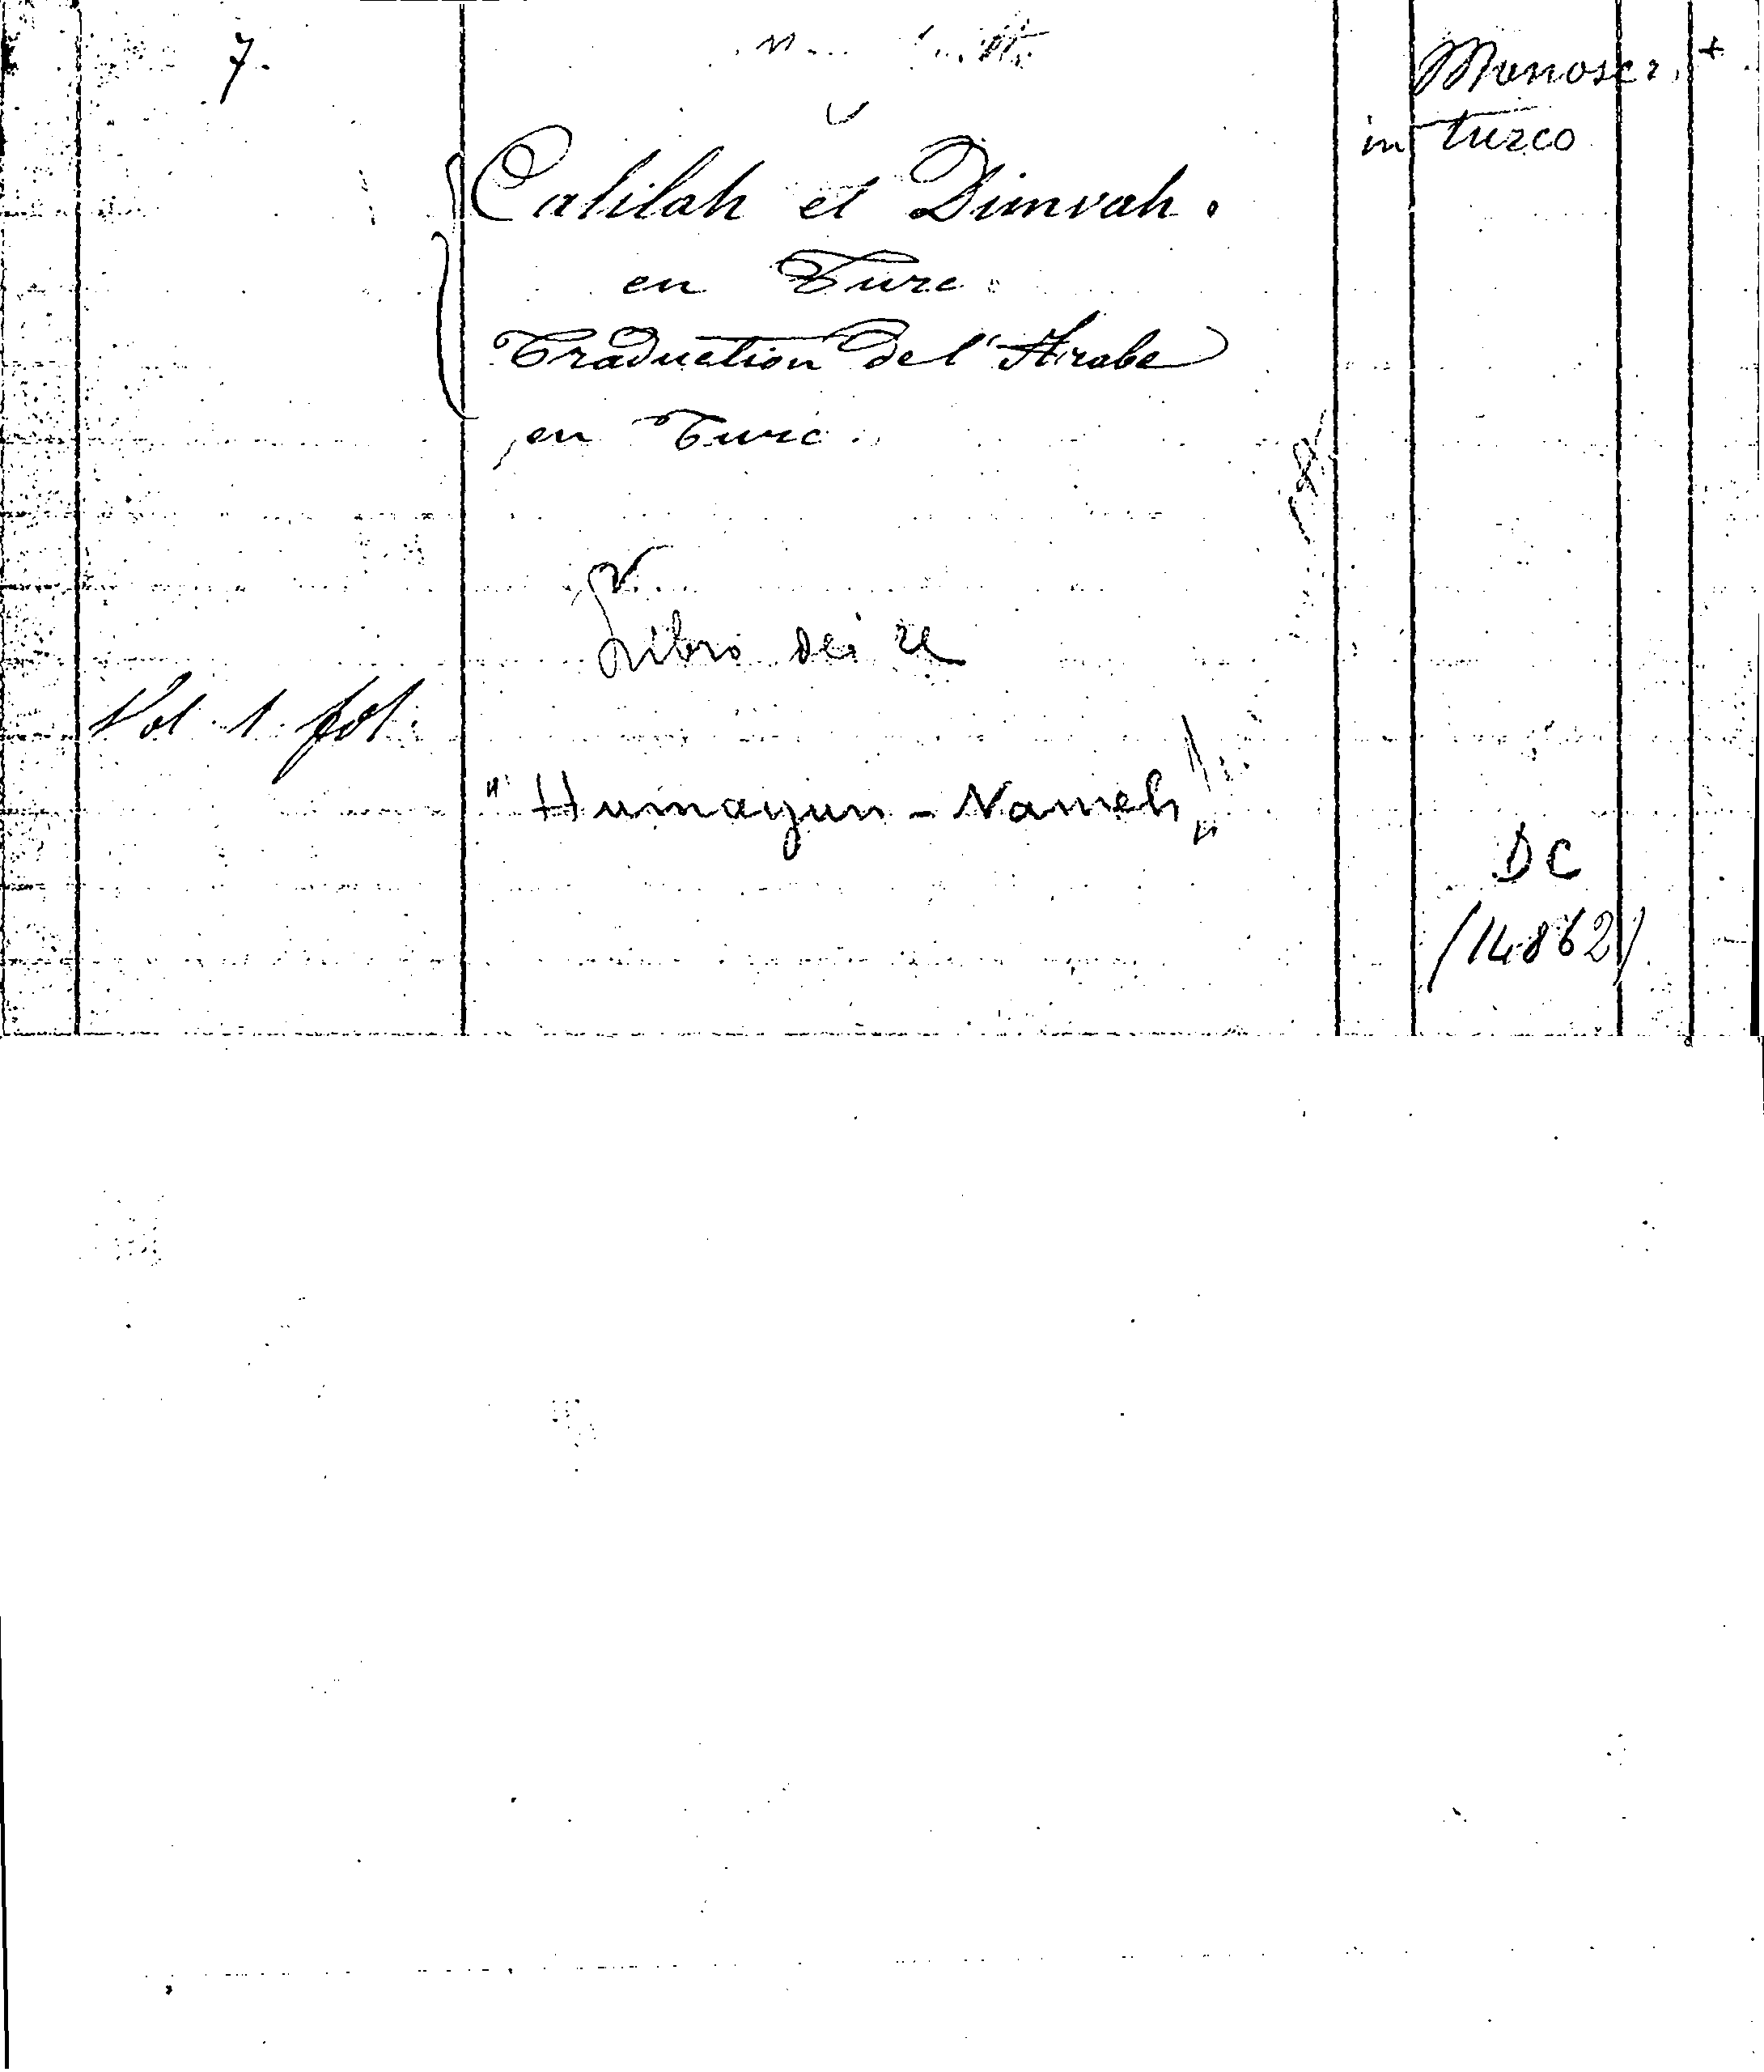 7.
Manoscr. +
in turco
Calilah et Dimnah.
en Turc.
Traduction de l'Arabe
en Turc.
Libro dei re
Vol. 1. fol.
" Humayun - Nameh "
DC
(14862)